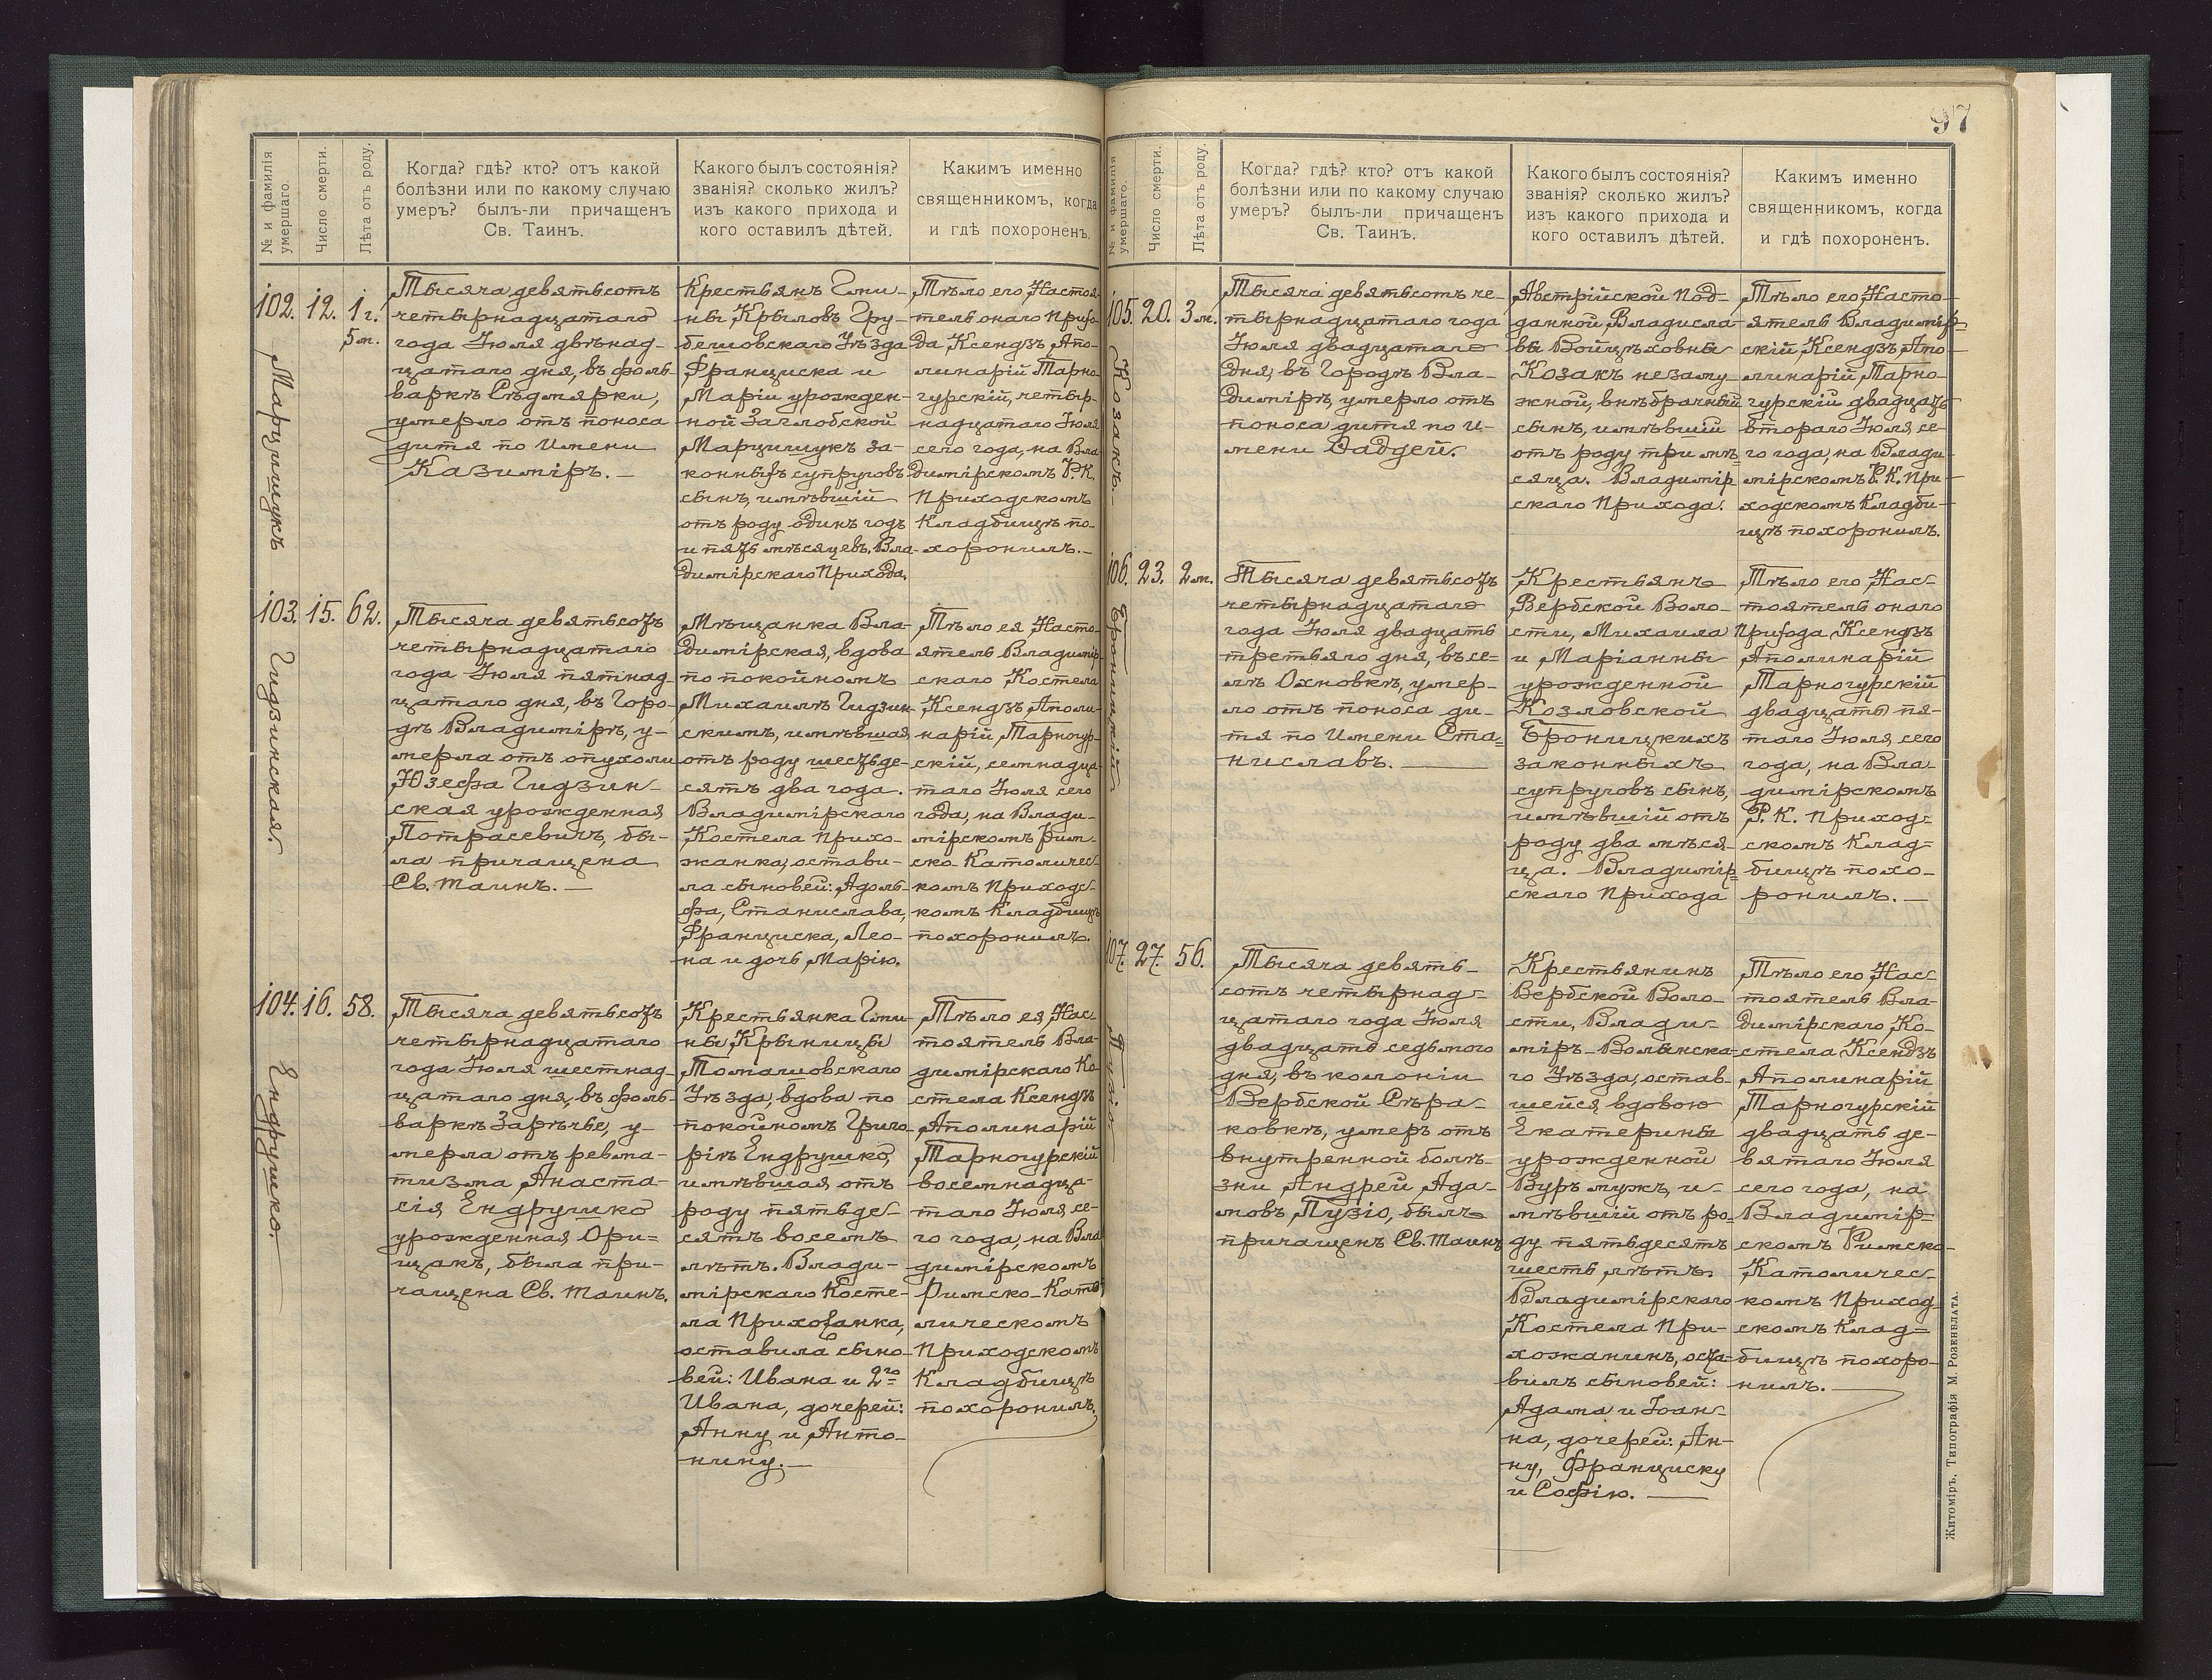 № и фамилія умершаго.
Число смерти.
Лѣта отъ роду.
Когда? гдѣ? кто? отъ какой
болѣзни или по какому случаю
умеръ? былъ-ли причащенъ
Св. Таинъ.
Какого былъ состоянія?
званія? сколько жилъ?
изъ какого прихода и
кого оставилъ дѣтей.
Каким именно
священникомъ, когда
и гдѣ похороненъ.
102. 12. 1 г.
5 м.
Марцишукъ
Тысяча девятьсотъ
четырнадцатаго
года Іюля двѣнад-
цатаго дня, въ фоль-
варкѣ Сѣдмярки,
умерло отъ поноса
дитя по имени
Казиміръ. —
Крестьянъ Гми-
ны Крыловъ Гру-
бешовскаго Уѣзда
Франциска и
Маріи урожден-
ной Заглобской
Марцишукъ за-
конныхъ супруговъ
сынъ, имѣвшій
отъ роду одинъ годъ
и пять мѣсяцевъ. Вла-
димірскаго Прихода.
Тѣло его, Настоя-
тель онаго Прихо-
да Ксендзъ Апо-
линарій Тарно-
гурскій, четыр-
надцатаго Іюля
сего года, на Вла-
димірскомъ Р. К.
Приходскомъ
Кладбищѣ по-
хоронилъ. —
103. 15. 62.
Гидзинская.
Тысяча девятьсотъ
четырнадцатаго
года Іюля пятнад-
цатаго дня, въ Горо-
дѣ Владимірѣ, у-
мерла отъ опухоли
Юзефа Гидзин-
ская урожденная
Потрасевичъ, бы-
ла причащена
Св. Таинъ. —
Мѣщанка Вла-
димірская, вдова
по покойномъ
Михаилѣ Гидзин-
скимъ, имѣвшая
отъ роду шестьде-
сятъ два года.
Владимірскаго
Костела прихо-
жанка, остави-
ла сыновей: Адоль-
фа, Станислава,
Франциска, Лео-
на и дочь Марію.
Тѣло ея Насто-
ятель Владимір-
скаго Костела
Ксендзъ Аполи-
нарій Тарногур-
скій, семнадца-
таго Іюля сего
года, на Влади-
мірскомъ Рим-
ско-Католичес-
комъ Приходс-
комъ Кладбищѣ
похоронилъ.
104. 16. 58.
Ендрушко.
Тысяча девятьсотъ
четырнадцатаго
года Іюля шестнад-
цатаго дня, въ фоль-
варкѣ Зарѣчье, у-
мерла отъ ревма-
тизма Анаста-
сія Ендрушко
урожденная Ори-
щакъ, была при-
чащена Св. Таинъ.
Крестьянка Гми-
ны Крыницы
Томашовскаго
Уѣзда, вдова по
покойномъ Григо-
ріѣ Ендрушко,
имѣвшая отъ
роду пятьде-
сятъ восемь
лѣтъ. Влади-
мірскаго Косте-
ла Прихожанка,
оставила сыно-
вей: Ивана и 2го
Ивана, дочерей:
Анну и Анто-
нину. —
Тѣло ея, Нас-
тоятель Вла-
димірскаго Ко-
стела Ксендзъ
Аполинарій
Тарногурскій
восемнадца-
таго Іюля, се-
го года, на Вла-
димірскомъ
Римско-Като-
лическомъ
Приходскомъ
Кладбищѣ
похоронилъ.
97
№ и фамилія умершаго.
Число смерти.
Лѣта отъ роду.
Когда? гдѣ? кто? отъ какой
болѣзни или по какому случаю
умеръ? былъ-ли причащенъ
Св. Таинъ.
Какого былъ состоянія?
званія? сколько жилъ?
изъ какого прихода и
кого оставилъ дѣтей.
Какимъ именно
священникомъ, когда
и гдѣ похороненъ.
105. 20. 3 м.
Козакъ.
Тысяча девятьсотъ че-
тырнадцатаго года
Іюля двадцатаго
дня, въ Городѣ Вла-
димірѣ, умерло отъ
поноса дитя по и-
мени Фаддей.
Австрійской под-
данной Владисла-
вы Войцѣховны
Козакъ незаму-
жной, внѣбрачный
сынъ, имѣвшій
отъ роду три мѣ-
сяца. Владимір-
скаго Прихода.
Тѣло его, Насто-
ятель Владимір-
скій Ксендзъ Апо-
линарій Тарно-
гурскій двадцать
втораго Іюля, се-
го года, на Влади-
мірскомъ Р. К. При-
ходскомъ Кладби-
щѣ похоронилъ.
106. 23. 2 м.
Броницкій
Тысяча девятьсотъ
четырнадцатаго
года Іюля двадцать
третьяго дня, въ се-
лѣ Охновкѣ, умер-
ло отъ поноса ди-
тя по имени Ста-
ниславъ. —
Крестьянъ
Вербской Воло-
сти, Михаила
и Маріанны
урожденной
Козловской
Броницкихъ
законныхъ
супруговъ сынъ,
имѣвшій отъ
роду два мѣся-
ца. Владимір-
скаго Прихода
Тѣло его, Нас-
тоятель онаго
Прихода Ксендзъ
Аполинарій
Тарногурскій
двадцать пя-
таго Іюля, сего
года, на Вла-
димірскомъ
Р. К. Приход-
скомъ Клад-
бищѣ похо-
ронилъ. —
107. 27. 56.
Пузіо
Тысяча девять-
сотъ четырнад-
цатаго года Іюля
двадцать седьмого
дня, въ колоніи
Вербской Сѣра-
ковкѣ, умеръ отъ
внутренной болѣ-
зни Андрей Ада-
мовъ Пузіо, былъ
причащенъ Св. Таинъ
Крестьянинъ
Вербской Воло-
сти, Влади-
міръ-Волынска-
го Уѣзда, остав-
шейся вдовою
Екатерины
урожденной
Вуръ мужъ, и-
мѣвшій отъ ро-
ду пятьдесятъ
шесть лѣтъ.
Владимірскаго
Костела При-
хожанинъ, оста-
вилъ сыновей:
Адама и Іоан-
на, дочерей: Ан-
ну, Франциску
и Софію. —
Тѣло его, Нас-
тоятель Вла-
димірскаго Ко-
стела Ксендзъ
Аполинарій
Тарногурскій
двадцать де-
вятаго Іюля
сего года, на
Владимір-
скомъ Римско-
Католичес-
комъ Приход-
скомъ Клад-
бищѣ похоро-
нилъ. —
Житоміръ, Типографія М. Розенблата.